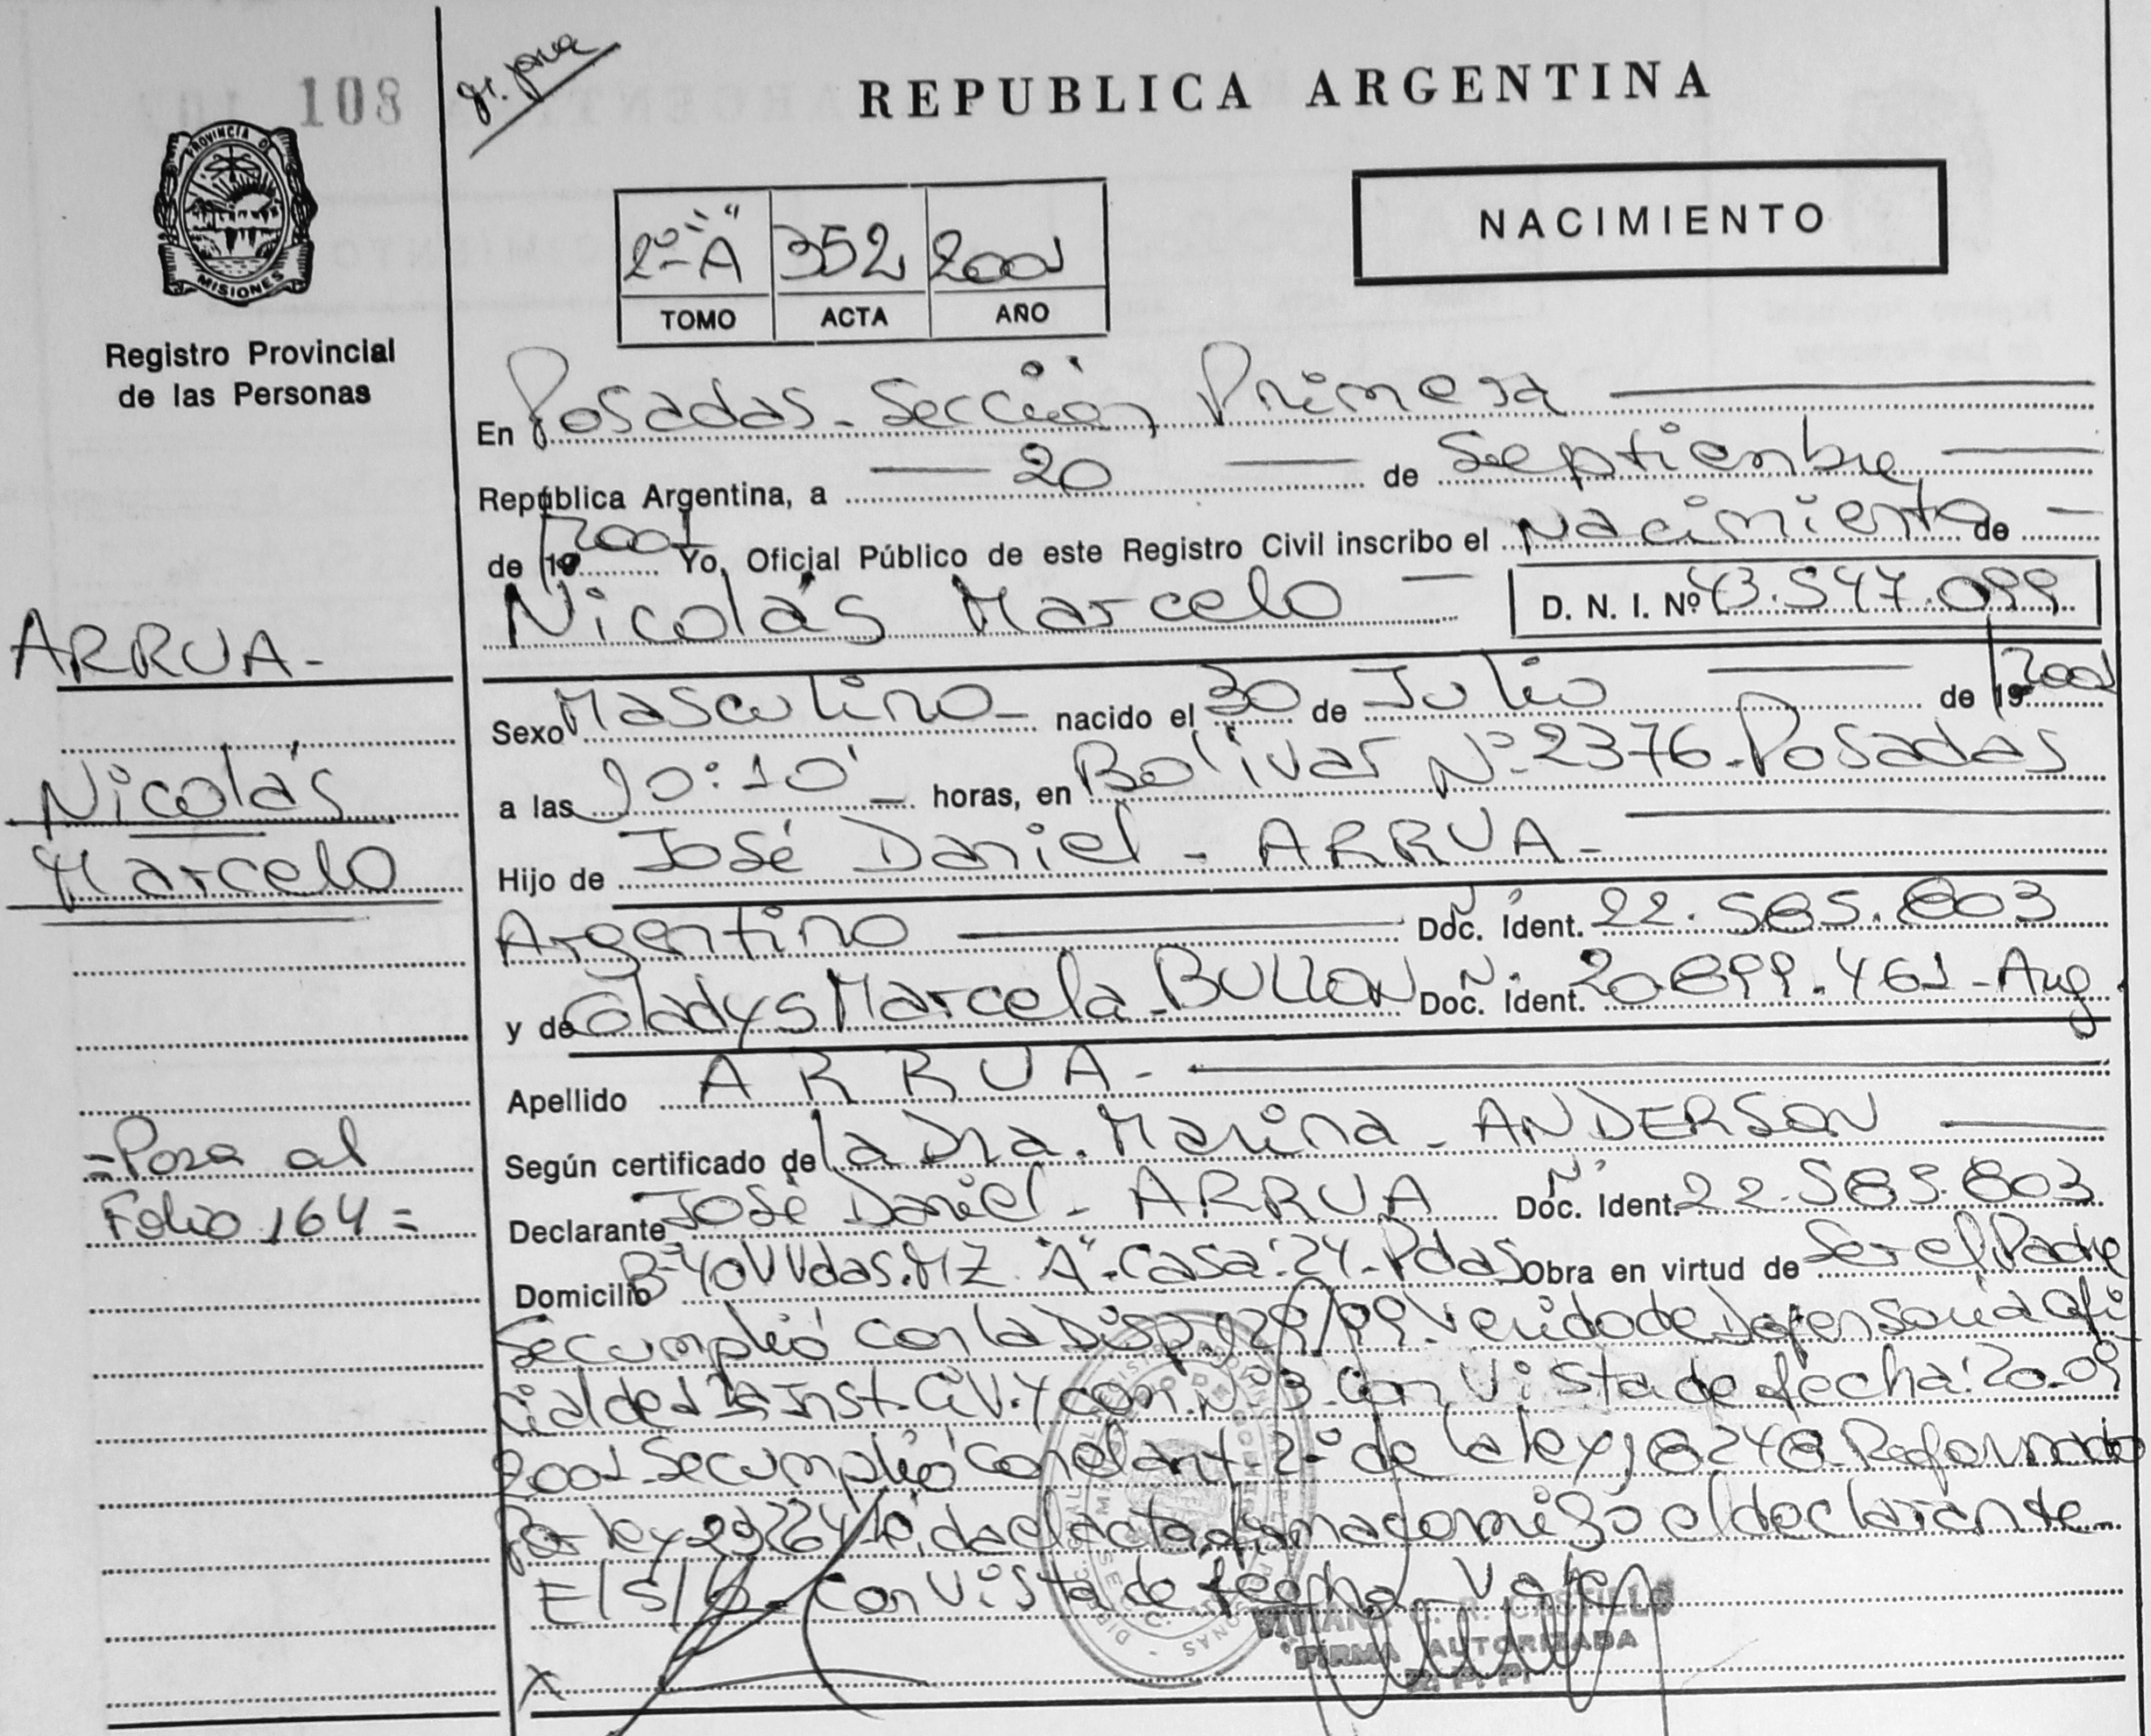 108
REPUBLICA ARGENTINA
PROVINCIA DE
MISIONES
Registro Provincial
de las Personas
NACIMIENTO
2º "A" 352 2001
TOMO ACTA AÑO
En Posadas - Sección Primera
República Argentina, a 20 de Septiembre
de 19 2001 Yo, Oficial Público de este Registro Civil inscribo el Nacimiento de
Nicolás Marcelo D. N. I. Nº 43.547.099
ARRUA-
Nicolás
Marcelo
Sexo Masculino - nacido el 30 de Julio de 19 2001
a las 20:10' - horas, en Bolívar Nº 2376 - Posadas
Hijo de José Daniel - ARRUA -
Argentino Doc. Ident. Nº 22.585.803
y de Gladys Marcela - BULLON Doc. Ident. Nº 20.899.461 - Arg.
Apellido ARRUA -
Según certificado de la Dra. Marina - ANDERSON
Declarante José Daniel - ARRUA Doc. Ident. Nº 22.585.803
Domicilio Bº 40 VVdas. MZ. "A" - Casa: 24 - Pdas Obra en virtud de Ser el Padre
=Pasa al
Folio 164=
Se cumplió con la Disp. 929/99 Venido de Defensoría Ofi
cial de 1ra Inst. Civ. y com. Nº 3 - Con Vista de fecha: 20-09
2001 - Se cumplió con el art. 2º de la ley 18248 - Reformado
por ley 23264 - leida el acta, firma como ìgo el declarante -
E/S/L - Con Vista de fecha - Vale
CASTILLO
FIRMA AUTORIZADA
R. P. P.
X